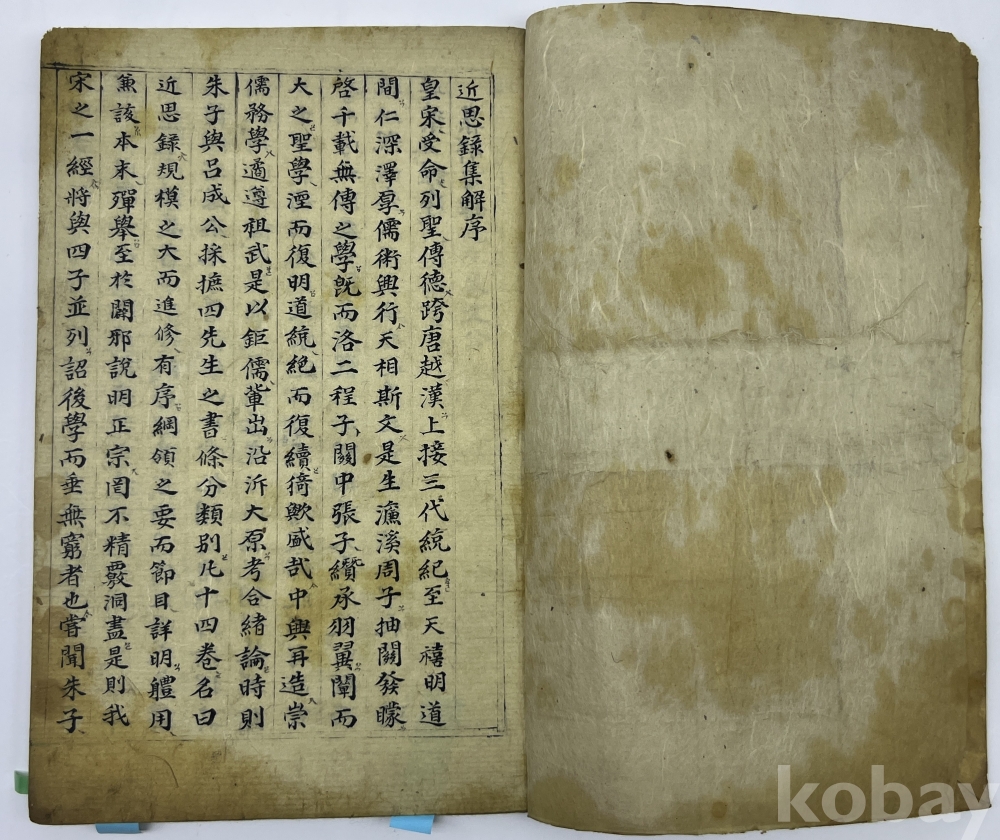 近思録集解序
皇宋受命列聖傳德跨唐越漢上接三代統紀至天禧明道
間仁深澤厚儒術興行天相斯文是生濂溪周子抽關發矇
啓千載無傳之學旣而洛二程子關中張子纘承羽翼闡而
大之聖學湮而復明道統絶而復續猗歟盛哉中興再造崇
儒務學遹遵祖武是以鉅儒軰出沿泝大原考合緒論時則
朱子與呂成公採摭四先生之書條分類別凡十四卷名曰
近思録規模之大而進修有序綱領之要而節目詳明軆用
兼該本末殫舉至於闢邪說明正宗罔不精覈洞盡是則我
宋之一經將與四子並列詔後學而垂無窮者也嘗聞朱子
kobay